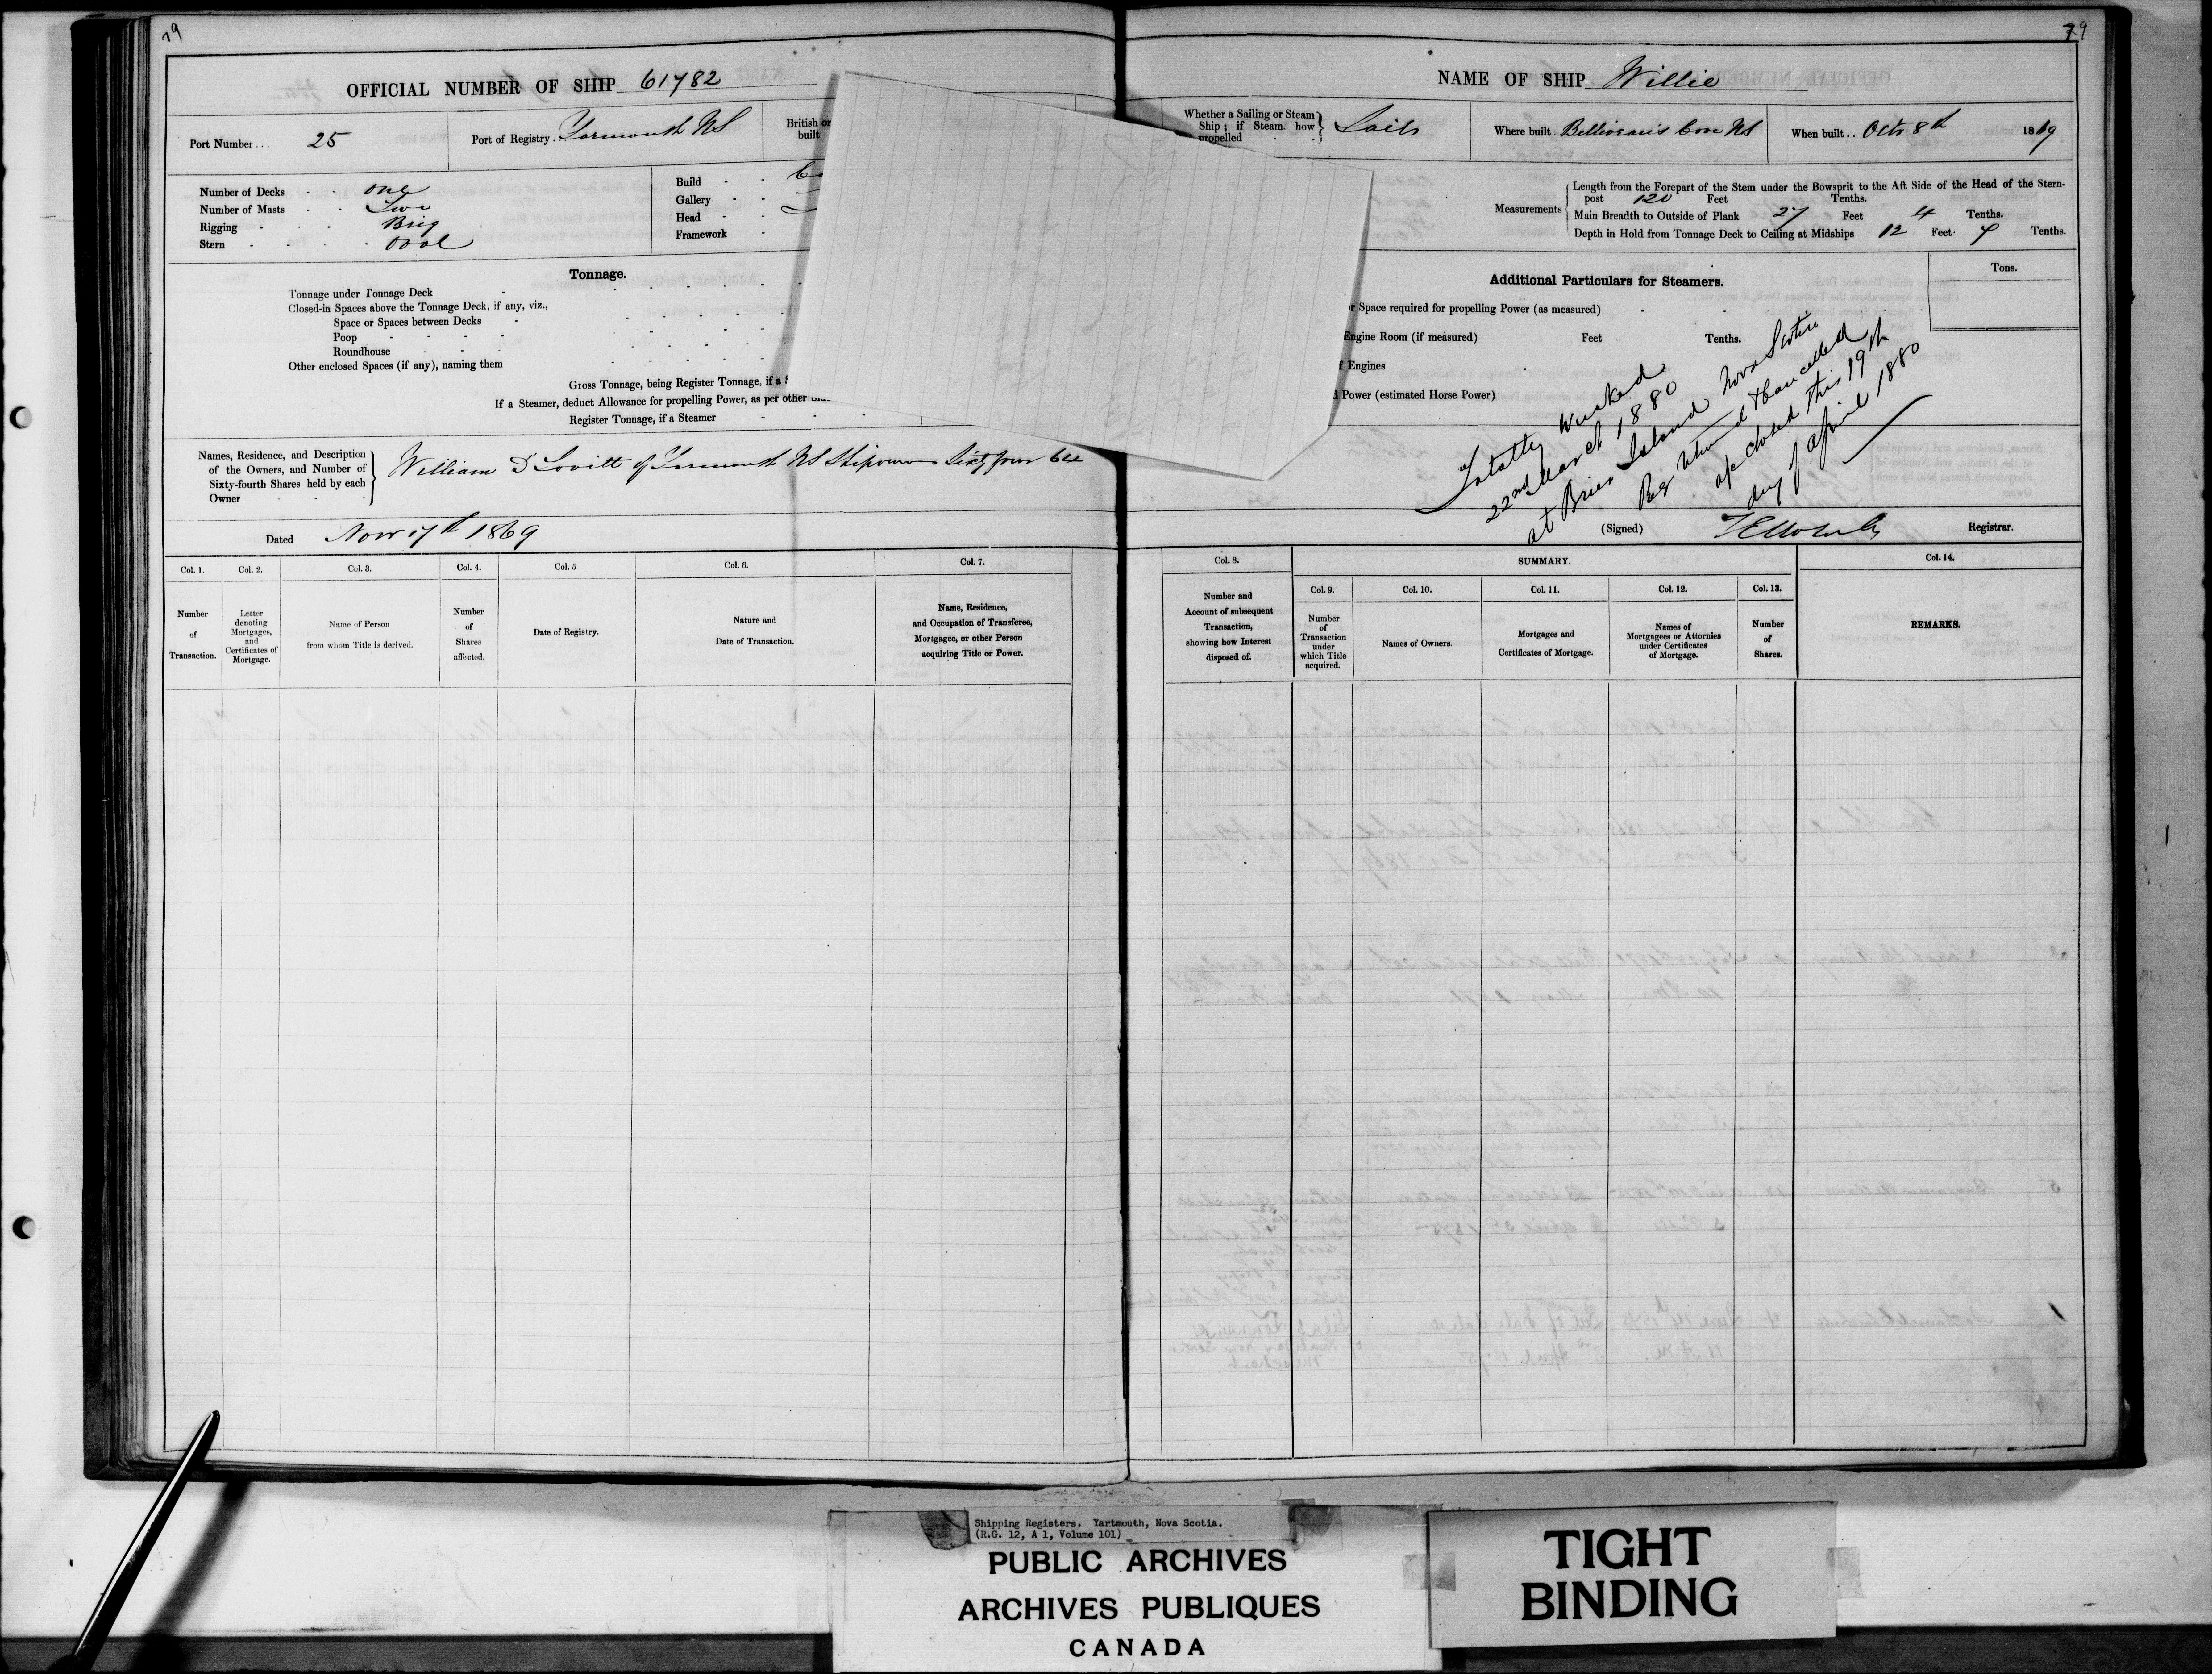 79
OFFICIAL NUMBER OF SHIP 61782
Port Number... 25
Port of Registry. Yarmouth NS
British or
built
Number of Decks - - one
Number of Masts - - Two
Rigging - - - Brig
Stern - - - - Oval
Build - -
Gallery - -
Head - -
Framework -
Tonnage.
Tonnage under Tonnage Deck
Closed-in Spaces above the Tonnage Deck, if any, viz.,
Space or Spaces between Decks
Poop
Roundhouse
Other enclosed Spaces (if any), naming them
Gross Tonnage, being Register Tonnage, if a
If a Steamer, deduct Allowance for propelling Power, as per other
Register Tonnage, if a Steamer
Names, Residence, and Description
of the Owners, and Number of
Sixty-fourth Shares held by each
Owner
William D Lovitt of Yarmouth NS Shipowner Sixty four 64
Dated Nov 17th 1869
Col. 1. Col. 2. Col. 3. Col. 4. Col. 5 Col. 6. Col. 7.
Number
of
Transaction.
Letter
denoting
Mortgages,
and
Certificates of
Mortgage.
Name of Person
from whom Title is derived.
Number
of
Shares
affected.
Date of Registry.
Nature and
Date of Transaction.
Name, Residence,
and Occupation of Transferee,
Mortgagee, or other Person
acquiring Title or Power.
79
NAME OF SHIP Willie
Whether a Sailing or Steam
Ship; if Steam. how
propelled
Sails
Where built Belliveau's Cove NS
When built.. Octr 8th 1869
Measurements
Length from the Forepart of the Stem under the Bowsprit to the Aft Side of the Head of the Stern-
post 120 Feet Tenths.
Main Breadth to Outside of Plank 27 Feet 4 Tenths.
Depth in Hold from Tonnage Deck to Ceiling at Midships 12 Feet 7 Tenths.
Additional Particulars for Steamers.
Tons.
or Space required for propelling Power (as measured)
Engine Room (if measured) Feet Tenths.
f Engines
Power (estimated Horse Power)
Totally Wrecked
22nd March 1880
at Brier Island Nova Scotia
Reg returned & Cancelled
a/c closed this 19th
day of April 1880
(Signed) Registrar.
Col. 8.
Number and
Account of subsequent
Transaction,
showing how Interest
disposed of.
SUMMARY.
Col. 9. Col. 10. Col. 11. Col. 12. Col. 13. Col. 14.
Number
of
Transaction
under
which Title
acquired.
Names of Owners.
Mortgages and
Certificates of Mortgage.
Names of
Mortgagees or Attornies
under Certificates
of Mortgage.
Number
of
Shares.
REMARKS.
Shipping Registers. Yartmouth, Nova Scotia.
(R.G. 12, A 1, Volume 101)
PUBLIC ARCHIVES
ARCHIVES PUBLIQUES
CANADA
TIGHT
BINDING